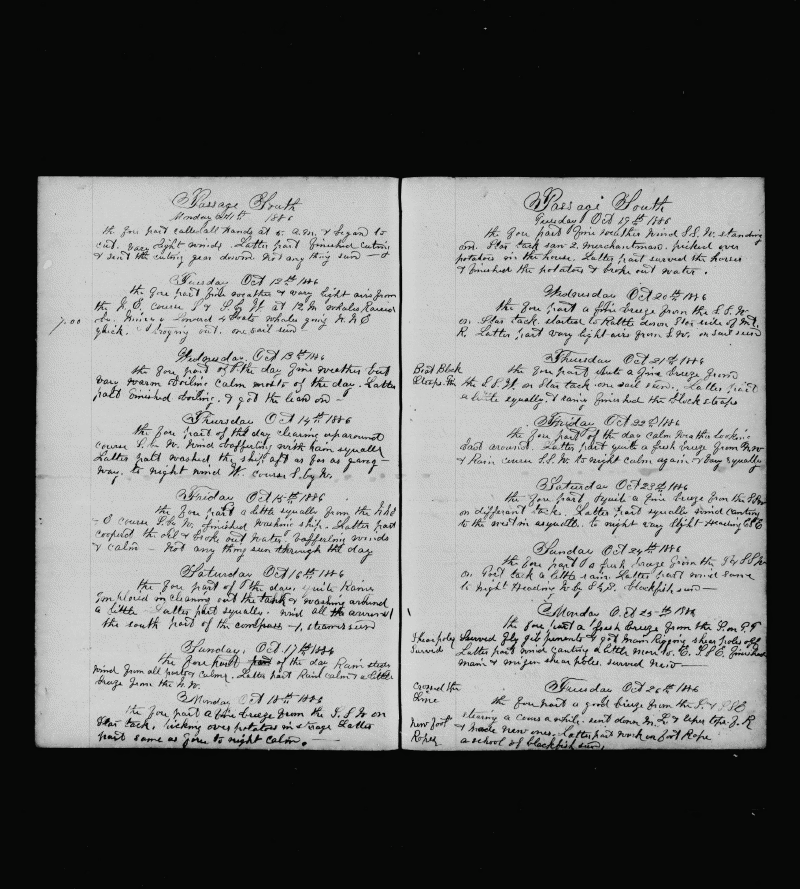 Passage South
Monday Oct 11th 1886
the fore part called all hands at 5. A.M. & began to
cut. vary light winds. Latter part finished cuting
& sent the cuting gear down. Not any thing seen
Tuesday Oct 12th 1886
the fore part fine weather & vary light airs from
the N.E. course S & S by W. at 12 M whales raised
7.00
quick. one sail seen
Wednesday Oct 13th 1886
the fore part of the day fine weather but
vary warm boiling calm most of the day. Latter
part finished boiling. & got the lead on
Thursday Oct 14th 1886
the fore part of the day clearing up around
course S. by W. wind baffling with ham squalls
Latter part washed the ship aft as far as gang-
way. to night wind W. course S. by W.
Friday Oct 15th 1886
the fore part a little squally from the
course S. by W. finished washing ship. Latter part
coopered the oil & broke out water. baffling winds
& calm - Not any thing seen through the day
Saturday Oct 16th 1886
the fore part of the day quite Rainy
Employed in cleaning out the tank & washing around
a little Latter part squally. wind all
the south part of the compass - 1, steamer seen
Sunday. Oct. 17th 1886
the fore part part of the day Rain steady
wind from all parts & calms. Latter part Rain calm & a little
breeze from the N.W.
Monday Oct 18th 1886
the fore part a fine breeze from the S. S W on
Star tack. Picking over potatoes in storage Latter
part same as fore to night calm.
Passage South
Tuesday Oct 19th 1886
the fore part fine weather wind S.S.W. standing
on. Star tack saw 2. merchantman. picked over
potatoes in the house. Latter part surved the horses
& finished the potatoes & broke out water.
Wednesday Oct 20th 1886
the fore part a fine breeze from the S.S.W.
on Star tack. started to Rattle down Star side of Mt.
R. Latter part vary light airs from S.W. on sail seen
Thursday Oct 21st 1886
Bent Block
Straps
the fore part quite a fine breeze from
the S.S.W. on Star tack one sail seen. Latter part
a little squally & rainy finished the block straps
Friday Oct 22nd 1886
the fore part of the day calm weather lookin
bad around. Latter part quite a fresh breeze from
& Rain course S.S.W. to night calm again & vary squally
Saturday Oct 23rd 1886
the fore part, quite a fine breeze from the
on different tack. Latter part squally wind canting
to the west in squalls. to night vary light heading S.E
Sunday Oct 24th 1886
the fore part a fresh breeze from the S by S.S.W
on Port tack a little rain. Latter part wind same
to night heading blackfish seen
Monday Oct 25th 1886
Shear poles
Surved
the fore part a fresh breeze from the
Surved fly gib penants & got main Riging shear poles off
Latter part wind canting a little more to E. finished
main & mizen shear poles. surved new
Tuesday Oct 26th 1886
Crossed the
Line
new foot
Ropes
the fore part a good breeze from the S. & S S E
stearing a cours a while. sent down
& made new ones. Latter part work on foot Rope
a school of blackfish seen.